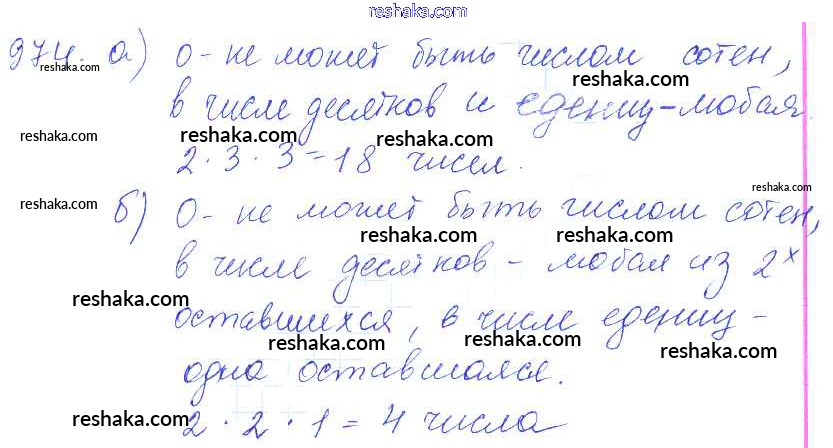 reshaka.com
974. а) 0 - не может быть числом сотен,
reshaka.com
reshaka.com
в числе десятков и едениц - любая.
reshaka.com
reshaka.com
reshaka.com
2 · 3 · 3 = 18 чисел.
reshaka.com
reshaka.com
б) 0 - не может быть числом сотен,
reshaka.com
reshaka.com
в числе десятков - любая из 2х
reshaka.com
оставшихся, в числе едениц -
reshaka.com
reshaka.com
reshaka.com
одна оставшаяся.
reshaka.com
2 · 2 · 1 = 4 числа
reshaka.com